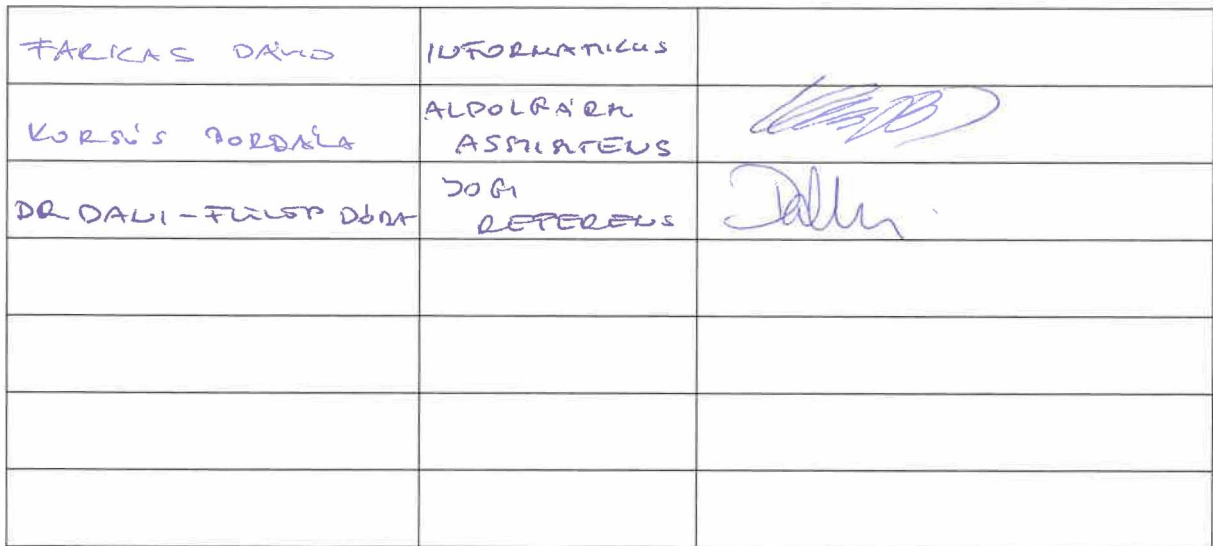 FARKAS DÁVID
INFORMATIKUS
KORSÓS BORBÁLA
ALPOLGÁRM
ASSZISZTENS
DR DALI-FÜLÖP DÓRA
JOGI
REFERENS